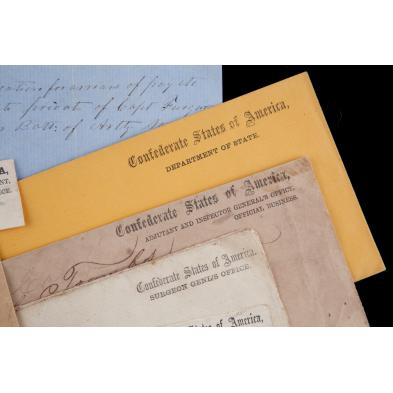 for arrears of pay etc
private of Capt
of
A,
NT,
ICE.
Confederate States of America,
DEPARTMENT OF STATE.
Confederate States of America,
ADJUTANT AND INSPECTOR GENERAL'S OFFICE.
OFFICIAL BUSINESS.
Confederate States of America.
SURGEON GENL'S OFFICE.
States of America,